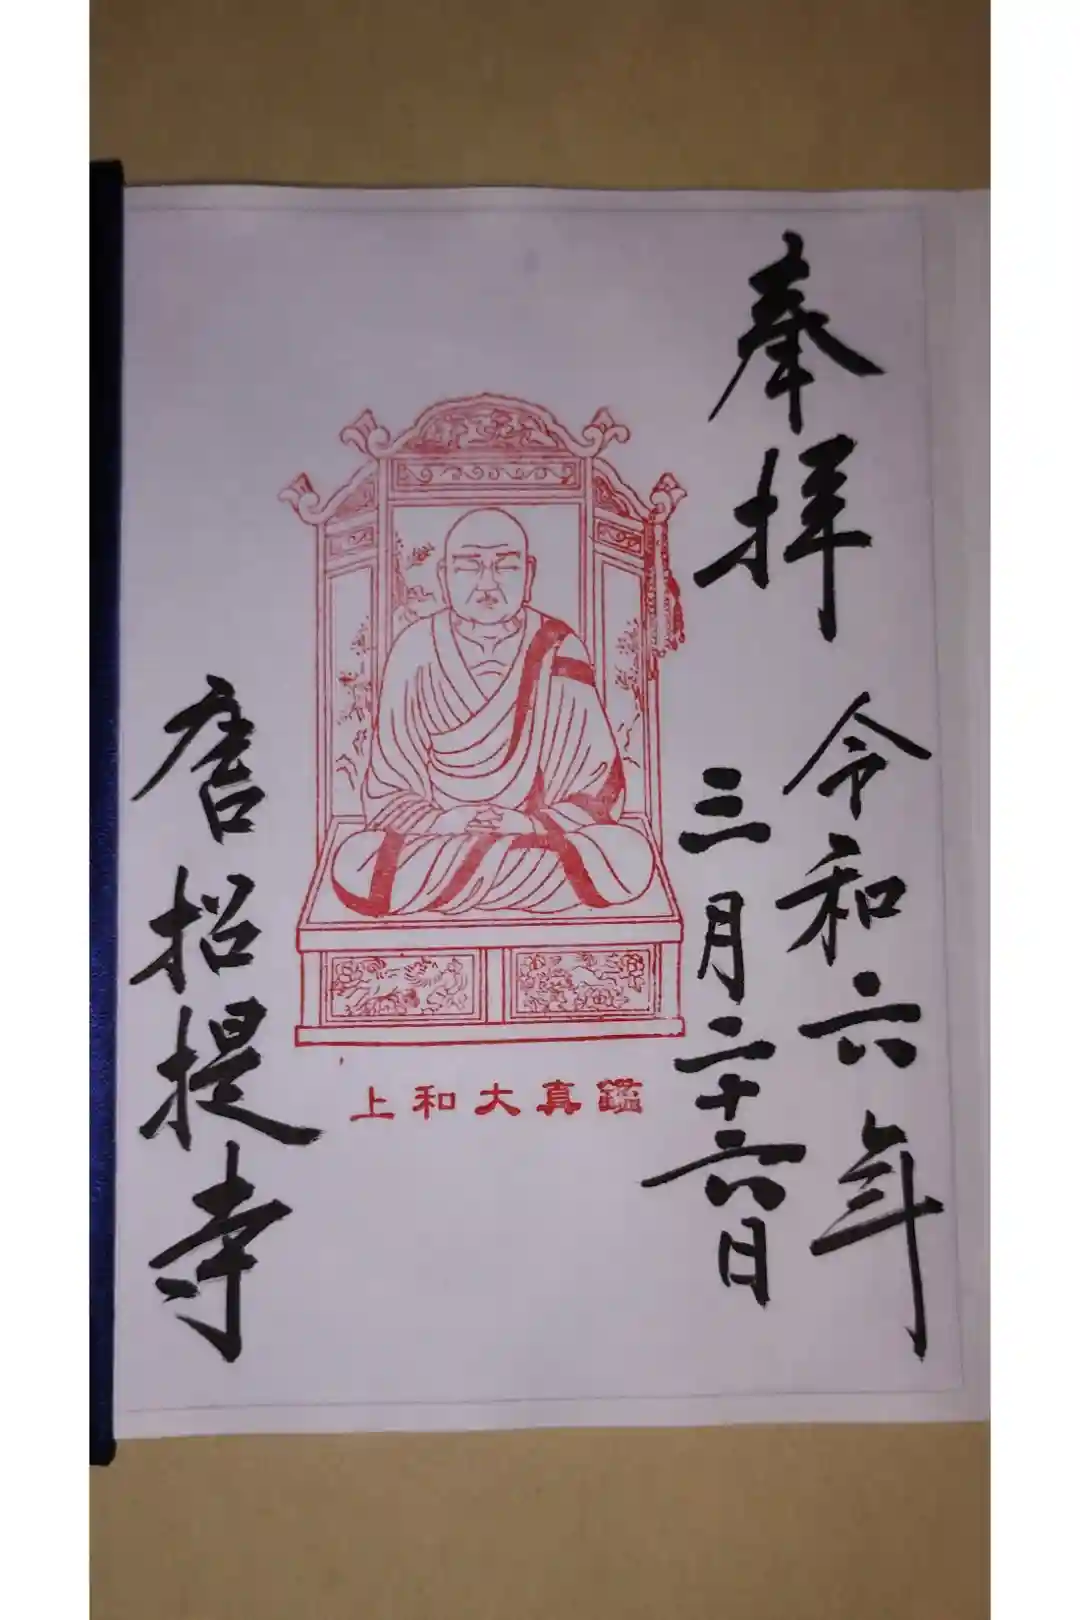 奉拝
令和六年
三月二十六日
鑑真大和上
唐招提寺